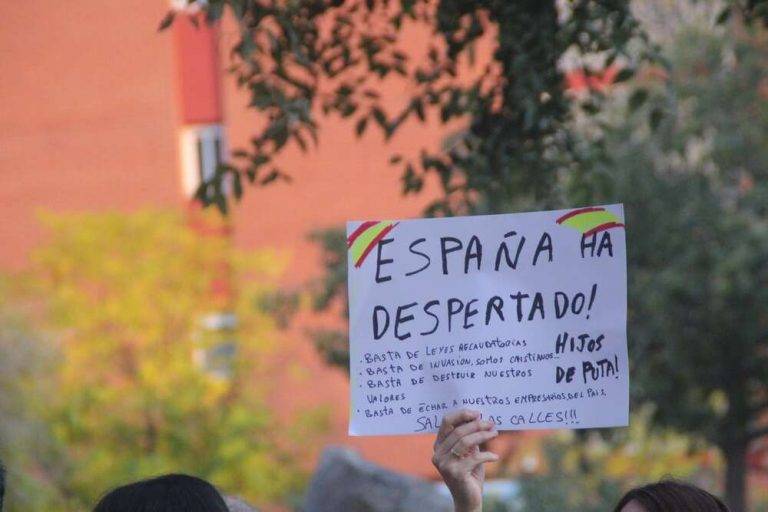 ESPAÑA HA
DESPERTADO!
· BASTA DE LEYES RECAUDATORIAS
· BASTA DE INVASIÓN, SOMOS CRISTIANOS..
· BASTA DE DESTRUIR NUESTROS
VALORES
· BASTA DE ECHAR A NUESTROS EMPRESARIOS DEL PAIS.
HIJOS
DE PUTA!
LAS CALLES!!!